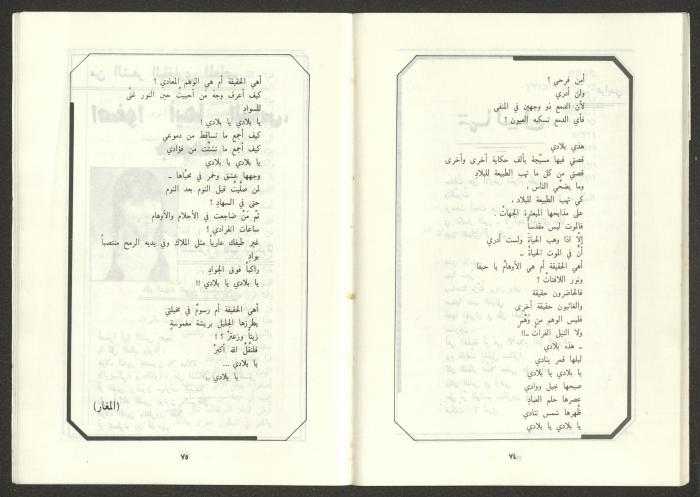 أمِن فرحي ؟
ولن أدري
لأن الدمع ذو وجهين في المنفى
فأي الدمع تسكبه العيون ؟
هذي بلادي
قصتي فيها مسيّجة بألف حكاية أخرى وأخرى
قصتي من كل ما تهب الطبيعة للبلادِ
وما يضحّي الناس .
كي تهب الطبيعة للبلاد .
على مذابحها المبعثرة الجهاتْ .
فالموت ليس مقدساً
إلّا اذا وهب الحياةَ ولست أدري
أنّ في الموت الحياةْ ــ
أهي الحقيقة أم هي الأوهامُ يا حيفا
ونور اللافتاتْ ؟
فالحاضرون حقيقة
والغائبون حقيقة أخرى
فليس الوهم من وَهْمٍ
ولا النيل الفراتْ ــ !!
ــ هذه بلادي
ليلها قمر ينادي
يا بلادي يا بلادي
صبحها جبل ووادي
عصرها حلم العبادِ
ظُهرها شمس تنادي
يا بلادي يا بلادي
٧٤
أهي الحقيقة أم هي الوهم المعادي ؟
كيف أعرف وجهَ مَن أحببتُ حين النور غنّى
للسوادِ
يا بلادي يا بلادي !
كيف أجمع ما تساقط من دموعي
كيف أجمع ما تشتّت من فؤادي
يا بلادي يا بلادي
وجهها عشق وخمر في محيّاها ــ
لمن صلّيتُ قبل النوم بعد النوم
حتى في السهادِ ؟
ثمّ مَنْ ضاجعت في الأحلام والأوهام
ساعات انفرادي ؟
غير طيفك عارياً مثل الملاك وفي يديه الرمح منتصباً
بوادِ
راكباً فوق الجوادِ
يا بلادي يا بلادي !!
أهي الحقيقة أم رسومٌ في مخيلتي
يطرزها الجليل بريشة مغموسةٍ
زيتاً وزعترْ ؟ !
فلنقلْ الله أكبرْ
يا بلادي ...
يا بلادي ..
(المغار)
٧٥